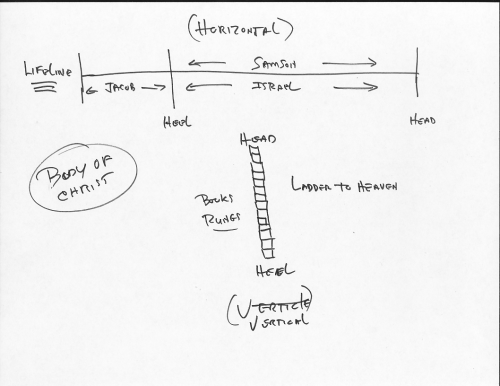 (HORIZONTAL)
LIFELINE
SAMSON
JACOB
ISRAEL
HEEL
HEAD
HEAD
BODY OF
CHRIST
LADDER TO HEAVEN
BOOKS
RUNGS
HEEL
(VERTICLE)
VERTICAL